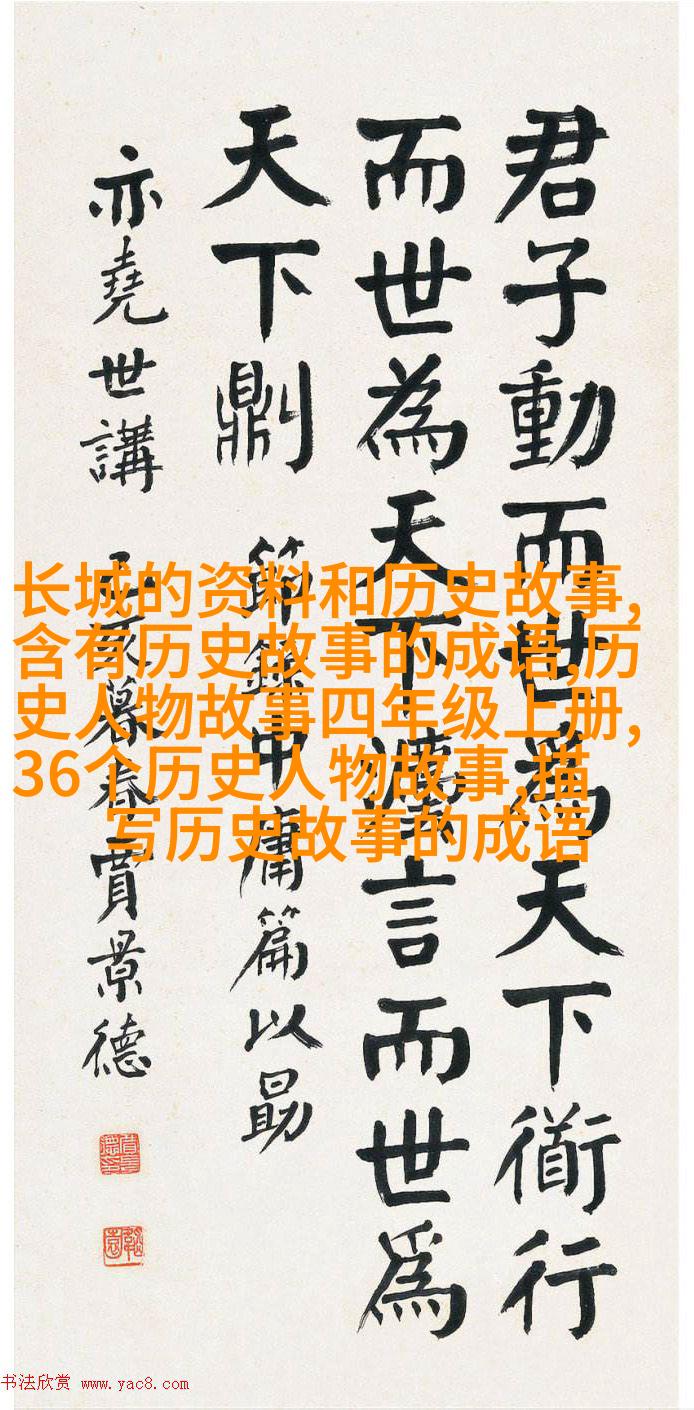 君子動而世為天下衜行
而世為天下灋言而世為
天下則 節錄中庸篇以勗
亦堯世講 春賈景德
长城的资料和历史故事,
含有历史故事的成语,历
史人物故事四年级上册,
36个历史人物故事,描
写历史故事的成语
书法欣赏 www.yac8.com